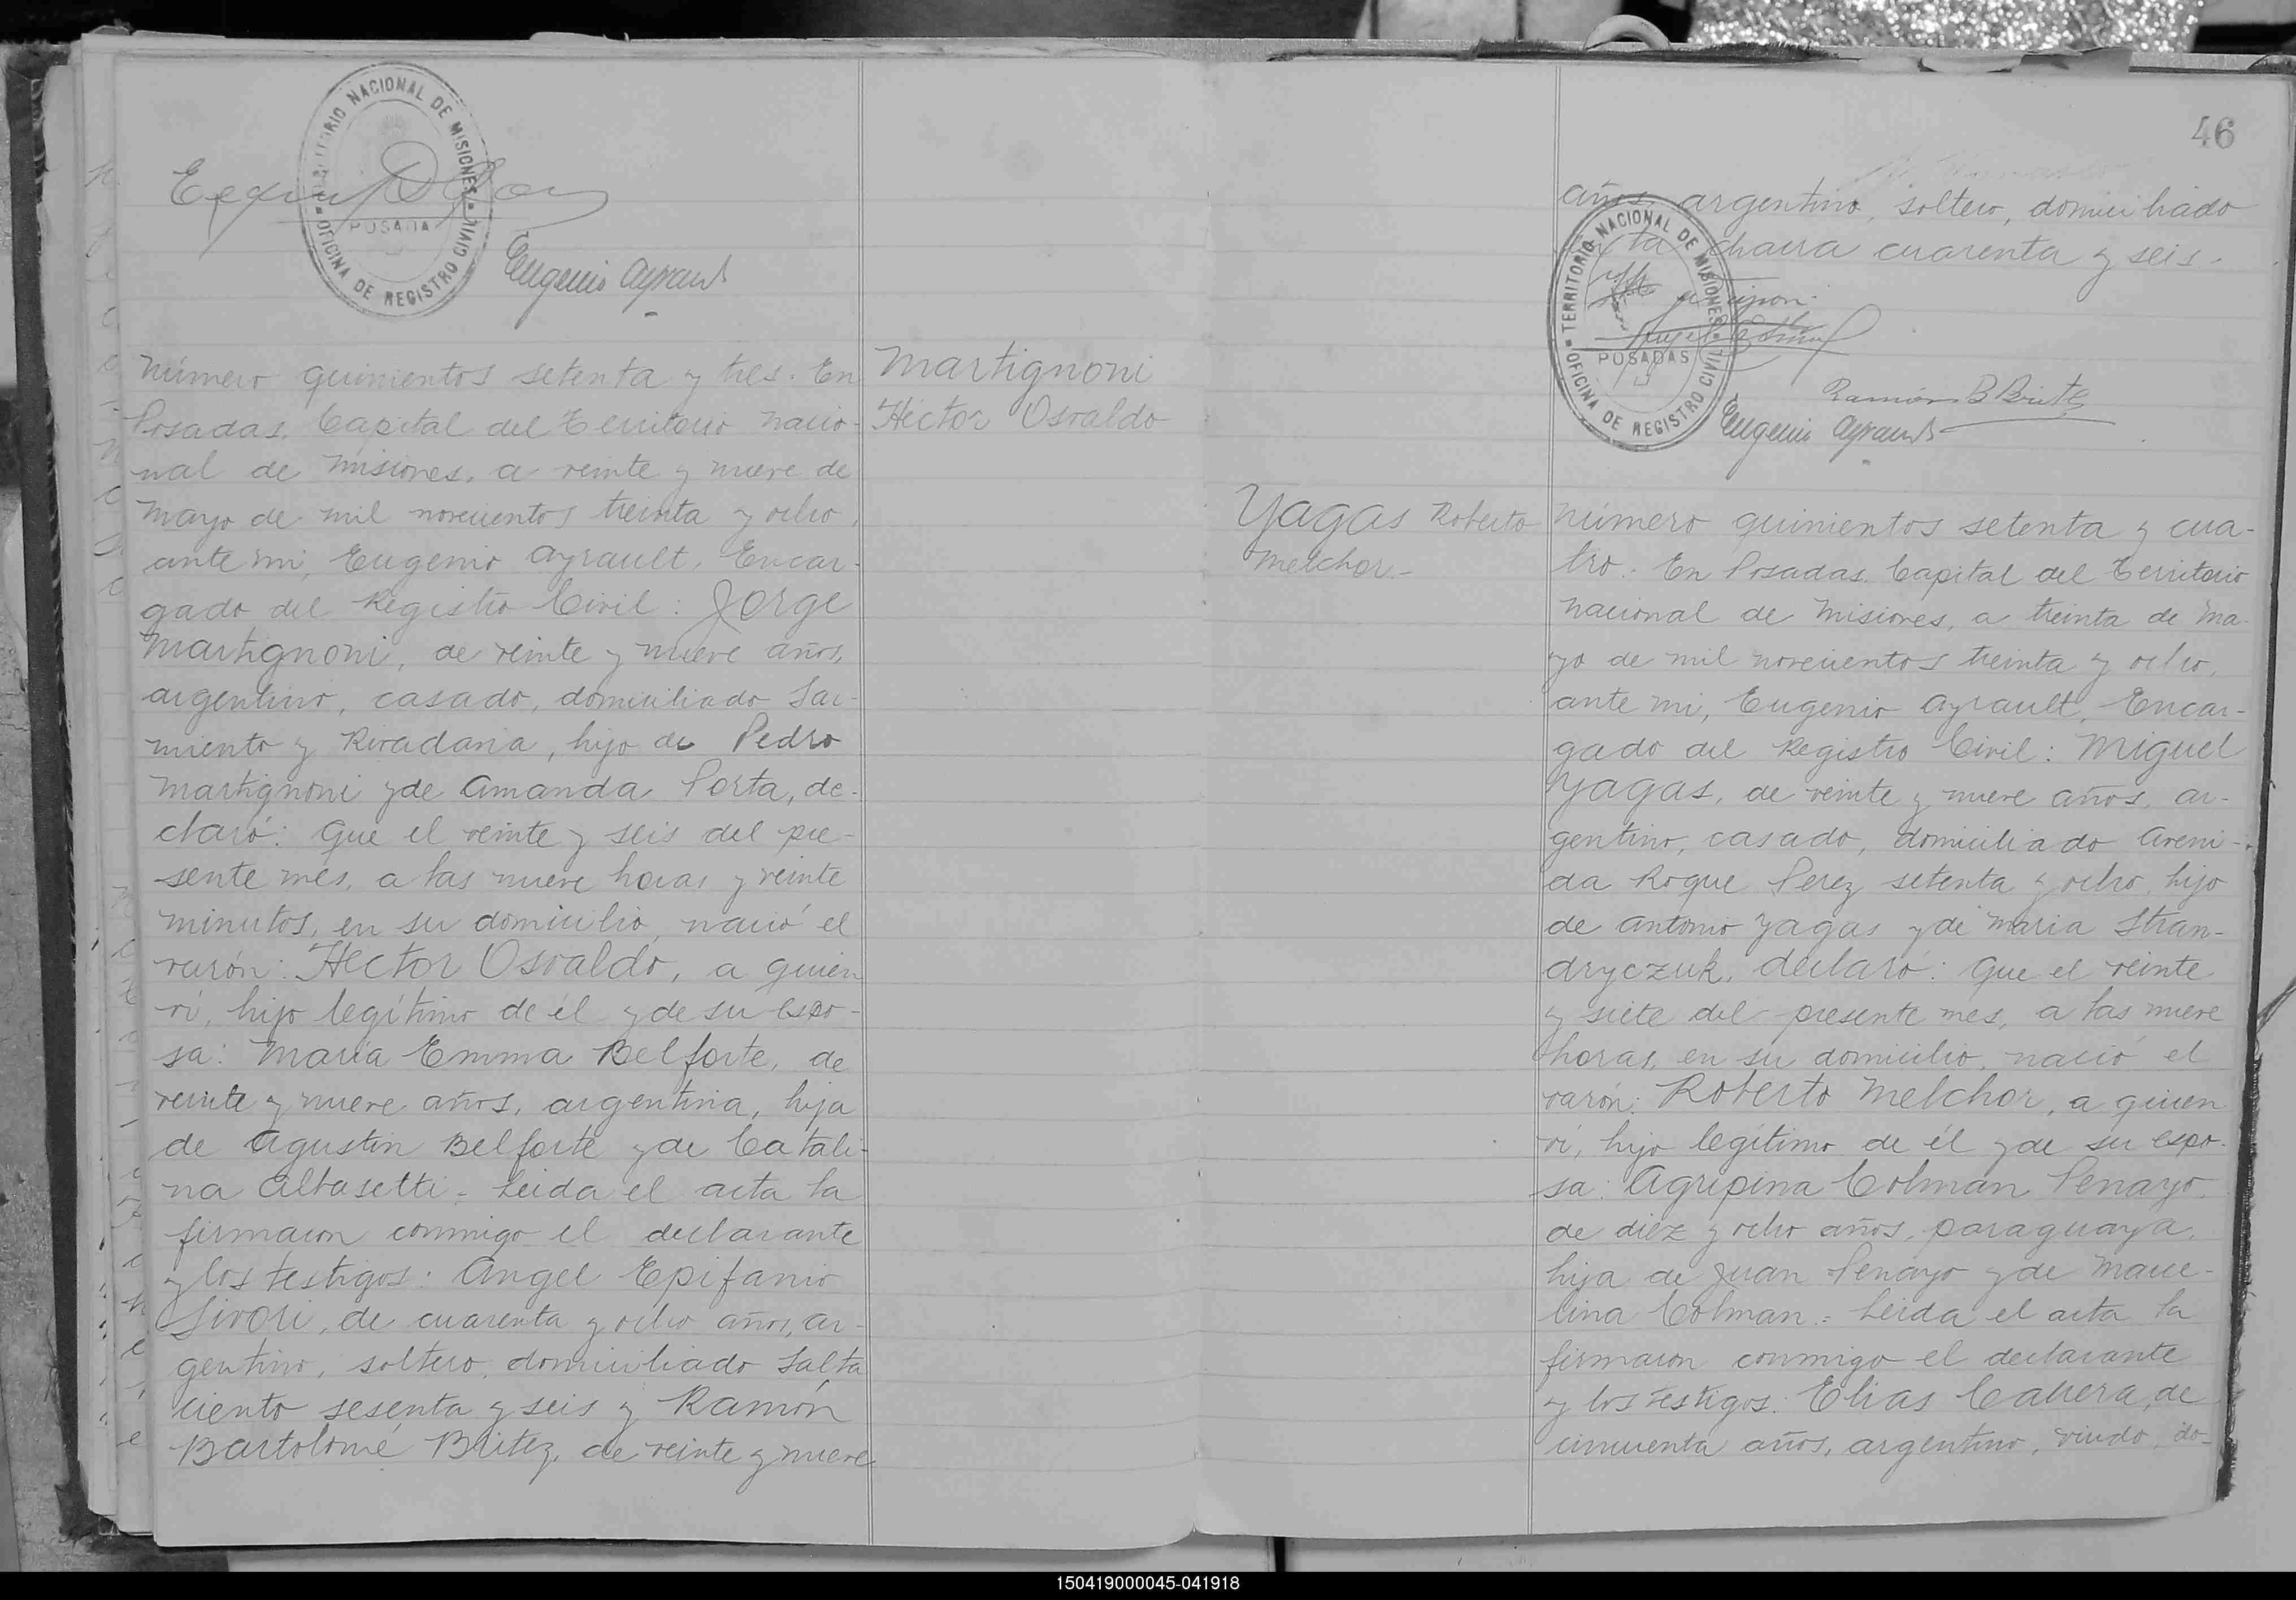 TERRITORIO NACIONAL DE MISIONES
OFICINA DE REGISTRO CIVIL
POSADAS
Eugenio Ayrault
Número quinientos setenta y tres. En
Posadas, Capital del Territorio Nacio-
nal de Misiones, a veinte y nueve de
Mayo de mil novecientos treinta y ocho,
ante mi, Eugenio Ayrault, Encar-
gado del Registro Civil: Jorge
Martignoni, de veinte y nueve años,
argentino, casado, domiciliado Sar-
miento y Rivadavia, hijo de Pedro
Martignoni y de Amanda Porta, de-
claró: Que el veinte y seis del pre-
sente mes, a las nueve horas y veinte
minutos, en su domicilio, nació el
varón: Héctor Osvaldo, a quien
ví, hijo legítimo de él y de su espo-
sa: María Emma Belforte, de
veinte y nueve años, argentina, hija
de Agustin Belforte y de Catali-
na Albasetti.- Leida el acta la
firmaron conmigo el declarante
y los testigos: Angel Epifanio
Sivori, de cuarenta y ocho años, ar-
gentino, soltero, domiciliado Salta
ciento sesenta y seis y Ramón
Bartolomé Britez, de veinte y nueve
Martignoni
Héctor Osvaldo
46
años, argentino, soltero, domiciliado
en la chacra cuarenta y seis.
TERRITORIO NACIONAL DE MISIONES
OFICINA DE REGISTRO CIVIL
POSADAS
Ramón B Britez
Eugenio Ayrault
Yagas Roberto
Melchor.-
Número quinientos setenta y cua-
tro. En Posadas, Capital del Territorio
Nacional de Misiones, a treinta de Ma-
yo de mil novecientos treinta y ocho,
ante mi, Eugenio Ayrault, Encar-
gado del Registro Civil: Miguel
Yagas, de veinte y nueve años, ar-
gentino, casado, domiciliado Aveni-
da Roque Perez setenta y ocho, hijo
de Antonio Yagas y de Maria Stran-
dryczuk, declaró: Que el veinte
y siete del presente mes, a las nueve
horas, en su domicilio, nació el
varón: Roberto Melchor, a quien
ví, hijo legítimo de él y de su espo-
sa: Agripina Colman Penayo,
de diez y ocho años, paraguaya,
hija de Juan Penayo y de Marce-
lina Colman.- Leida el acta la
firmaron conmigo el declarante
y los testigos: Elias Cabrera, de
cincuenta años, argentino, viudo, do-
150419000045-041918